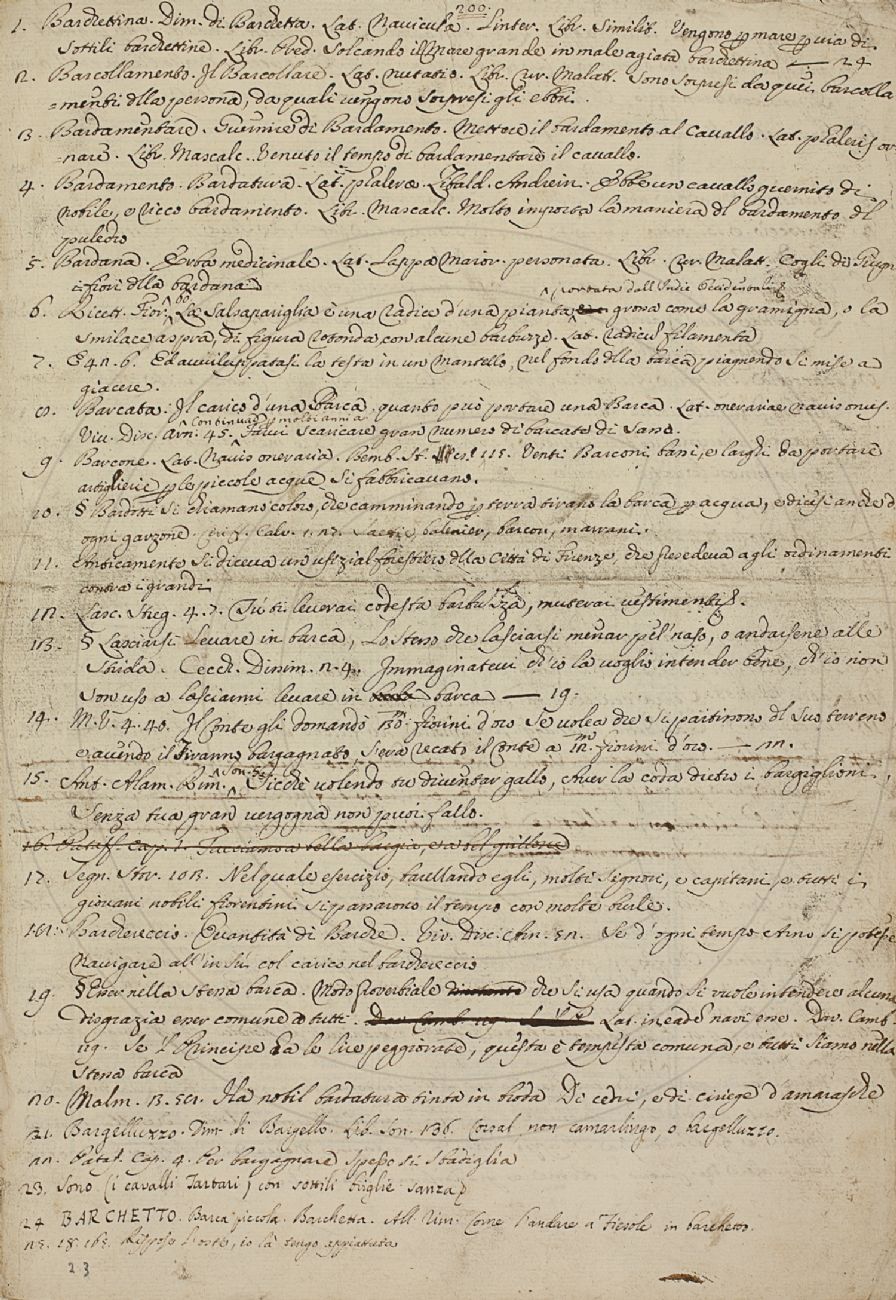 200.
1. Barchettina. Dim. di Barchetta. Lat. Navicula. Linter. Libr. Similit. Vengono p mare p via di
sottili barchettine. Libr. Pred. Solcando il mare grande in male agiata barchettina — 24
2. Barcollamento. Il Barcollare. Lat. nutatio. Libr. cur. Malatt. Sono sorpresi da quei barcolla
=menti dlla persona, da quali vengono sorpresi gli ebbri.
3. Bardamentare. Guernire di Bardamento. Mettere il bardamento al Cavallo. Lat. phaleris or
=nare. Libr. Mascalc. Venuto il tempo di bardamentare il cavallo.
4. Bardamento. Bardatura. Lat. phaleræ. Zibald. Andrein. Ebbe un cavallo guernito di
nobile, e ricco bardamento. Libr. Mascalc. Molto importa la maniera dl bardamento dl
puledro
5. Bardana. Erba medicinale. Lat. Lappa Maior. personata. Libr. cur. Malatt. Cogli di Giugn
i fiori dlla bardana
portata dall'Indie Occidentali
6. Ricett. Fior. 60 La Salsapariglia è una radice d'una pianta grossa come la gramigna, o la
smilace aspra, di figura rotonda, con alcune barbuzze. Lat. radicis filamenta
7. G 4. n. 6. Ed avviluppatasi la testa in un mantello, nel fondo dlla barca piagnendo si mise a
giacere.
8. Barcata. Il carico d'una Barca, quanto può portare una Barca. Lat. onerariae navis onus.
continuar molti anni a
Viv. Disc. Arn. 45. farvi scaricare gran numero di barcate di sassi.
9. Barcone. Lat. Navis oneraria. Bemb. St. 115. Venti Barconi bassi, e larghi da portare
artiglierie p le piccole acque si fabbricavano.
10. § Bardotti si chiamano coloro, che camminando p terra tirano la barca p acqua, e dicesi anche d
ogni garzone. Ciriff. Calv. Saettie, balenier, barcon, marrani.
11. Anticamente si diceva un ufizial forestiero dlla Città di Firenze, che presedeva agli ordinamenti
contra i grandi
12. Lasc. Streg. 4. 7. Tu ti leverai codesta barbuzza, muterai vestimenti.
13. § Lasciarsi levare in barca, Lo stesso che lasciarsi menar pel naso, o andarsene alle
Grida. Cecch. Dissim. 2. 4. Immaginatevi ch'io la voglio intender bene, ch'io non
son uso a lasciarmi levare in barca — 19.
14. M. V. 4. 40. Il Conte gli domandò fiorini d'oro se volea che si partissono dl suo terreno
e avendo il Tiranno bargagnato, s'era recato il Conte a fiorini d'oro.
15. Ant. Alam. Rim. Son. Sicchè volendo tu diventar gallo, Aver la coda dietro i bargiglioni,
Senza tua gran vergogna non puoi fallo.
16. Pataff. Cap. 1.
17. Segn. Stor. 103. Nel quale esercizio, burlando egli, molti Signori, e capitani, e tutti i
giovani nobili fiorentini si passarono il tempo con molte burle.
18. Barchereccio. Quantità di Barche. Viv. Disc. Arn. 52. Se d'ogni tempo Arno si potesse
Navigare all'in sù col carico nel barchereccio
19. § Esser nella stessa barca. Modo proverbiale che si usa quando si vuole intendere alcuna
disgrazia esser comune a tutti. Lat. in eade navi esse. Dav. Camb.
Se 'l Principe fa le lire peggiorate, questa è tempesta comune, e tutti siamo nella
stessa barca
20. Malm. Ha nobil bardatura tinta in broda Di cedri, e di ciriege d'amarasche
21. Bargelluzzo. Dim. di Bargello. Lib. Son. 136. Corsal, non camarlingo, o bargelluzzo.
22. Pataf. Cap. 4. Per bargagnare spesso si sbadiglia
23. Sono (i cavalli Tartari) con sottili briglie sanza
24 BARCHETTO. Barca piccola. Barchetta. All. Rim. Come l'andare a Fiesole in barchetto.
25. 18. 163. Rispose l'oste, io la tengo appiattata
23